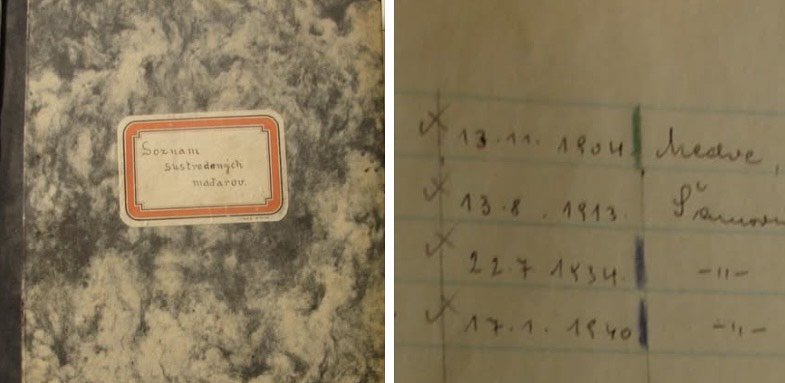 Soznam
sústredených
maďarov.
13.11. 1904 Medve,
13.8. 1913.
22.7 1934. -"-
17.1. 1940 -"-